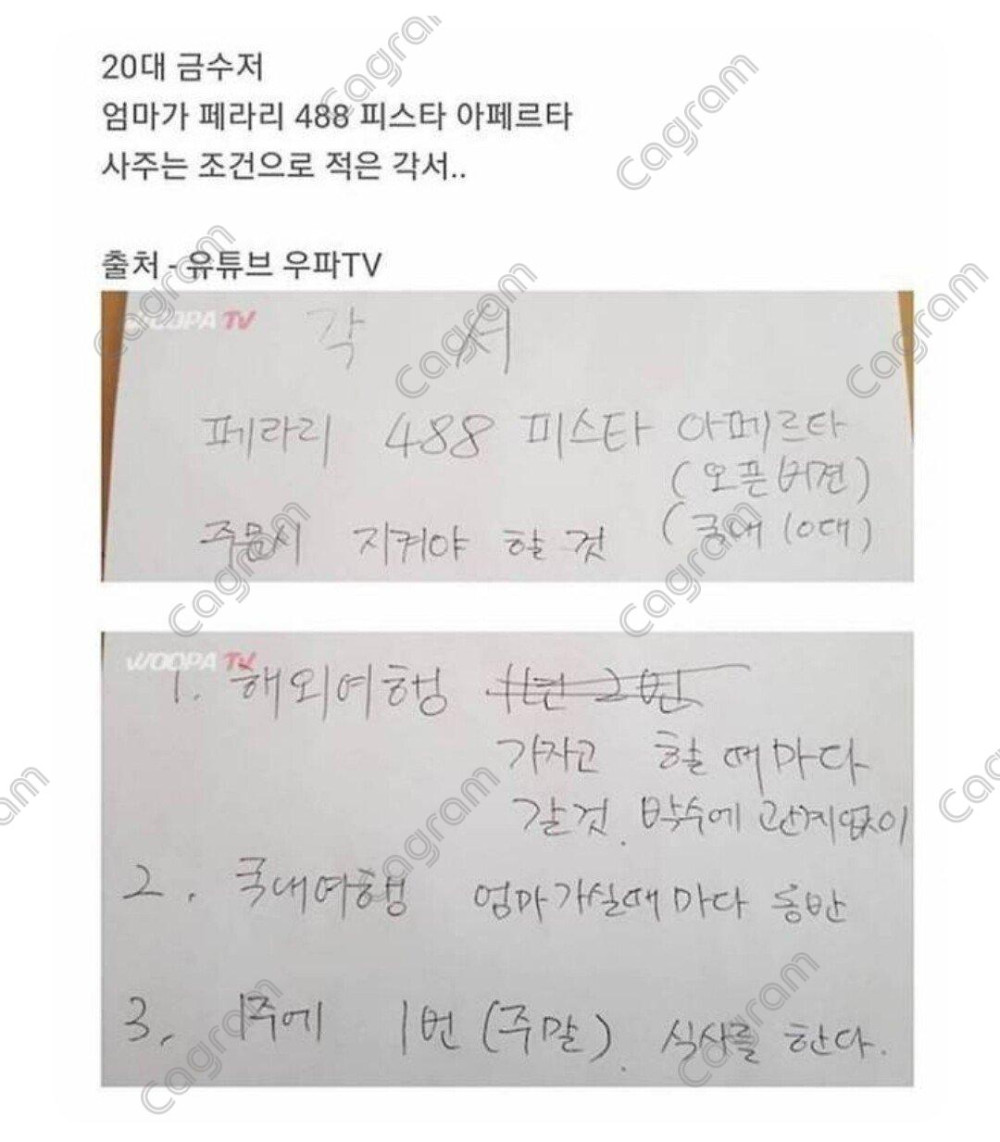 20대 금수저
엄마가 페라리 488 피스타 아페르타
사주는 조건으로 적은 각서..
출처 - 유튜브 우파TV
WOOPA TV
각 서
페라리 488 피스타 아페르타
(오픈버젼)
주문시 지켜야 할 것 (국내 10대)
WOOPA TV
1. 해외여행 1년 2번
가자고 할 때마다
갈것. 박수에 관계없이
2. 국내여행 엄마가실때마다 동반
3. 1주에 1번 (주말). 식사를 한다.
Cagram
Cagram
Cagram
Cagram
Cagram
Cagram
Cagram
Cagram
Cagram
Cagram
Cagram